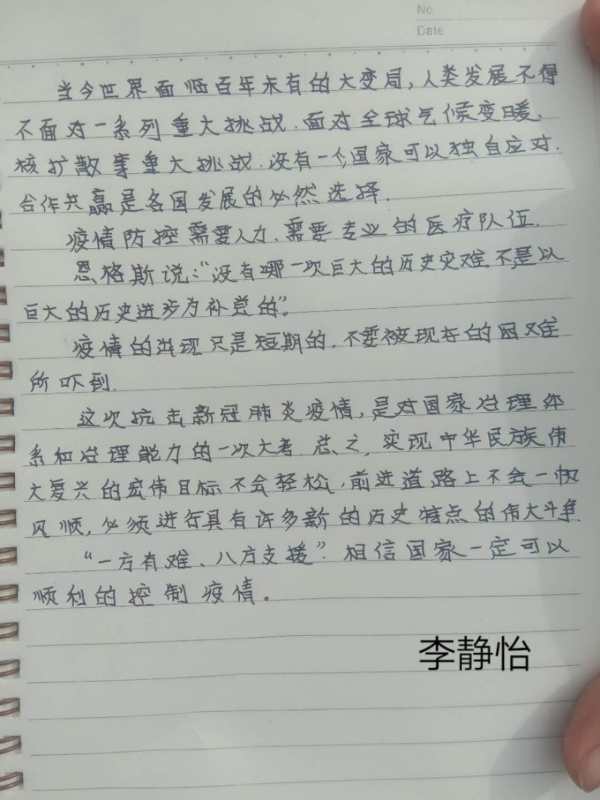 No
Date
当今世界面临百年未有的大变局,人类发展不得
不面对一系列重大挑战.面对全球气候变暖、
核扩散等重大挑战.没有一个国家可以独自应对.
合作共赢是各国发展的必然选择.
疫情防控需要人力、需要专业的医疗队伍.
恩格斯说:“没有哪一次巨大的历史灾难不是以
巨大的历史进步为补偿的”。
疫情的出现只是短期的.不要被现在的困难
所吓到.
这次抗击新冠肺炎疫情,是对国家治理体
系和治理能力的一次大考.总之,实现中华民族伟
大复兴的宏伟目标不会轻松,前进道路上不会一帆
风顺,必须进行具有许多新的历史特点的伟大斗争
“一方有难、八方支援”.相信国家一定可以
顺利的控制疫情。
李静怡